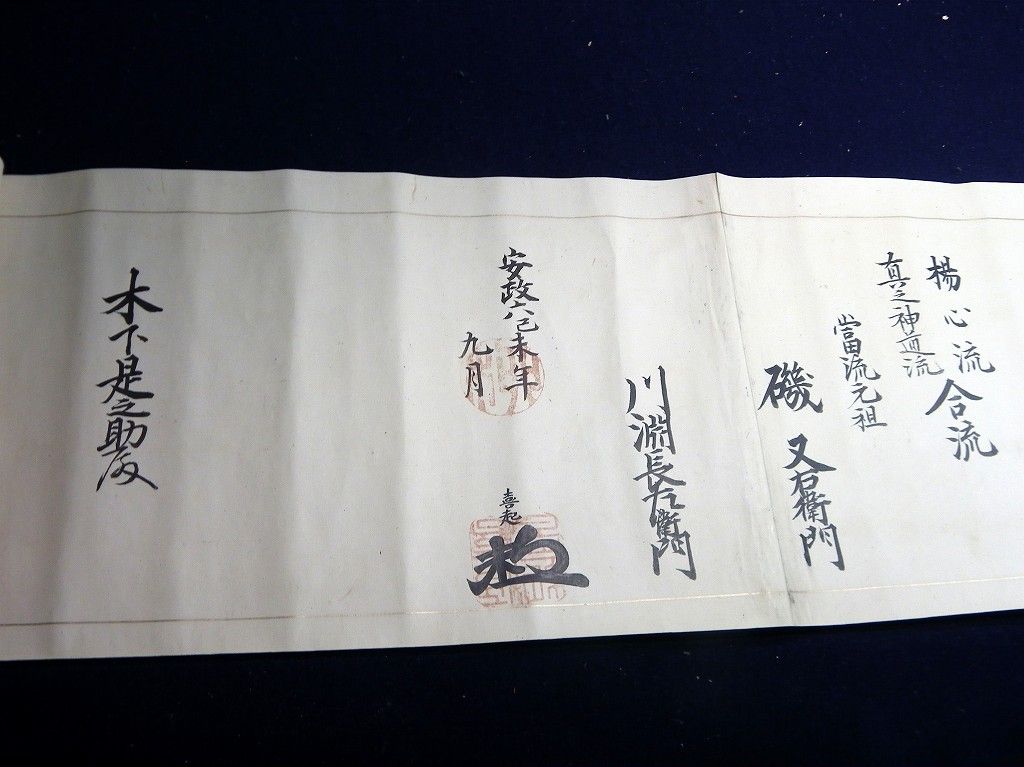 楊心流
真之神道流
合流
當流元祖
磯又右衛門
川渕長左衛門
安政六己未年
九月
喜起
木下是之助殿